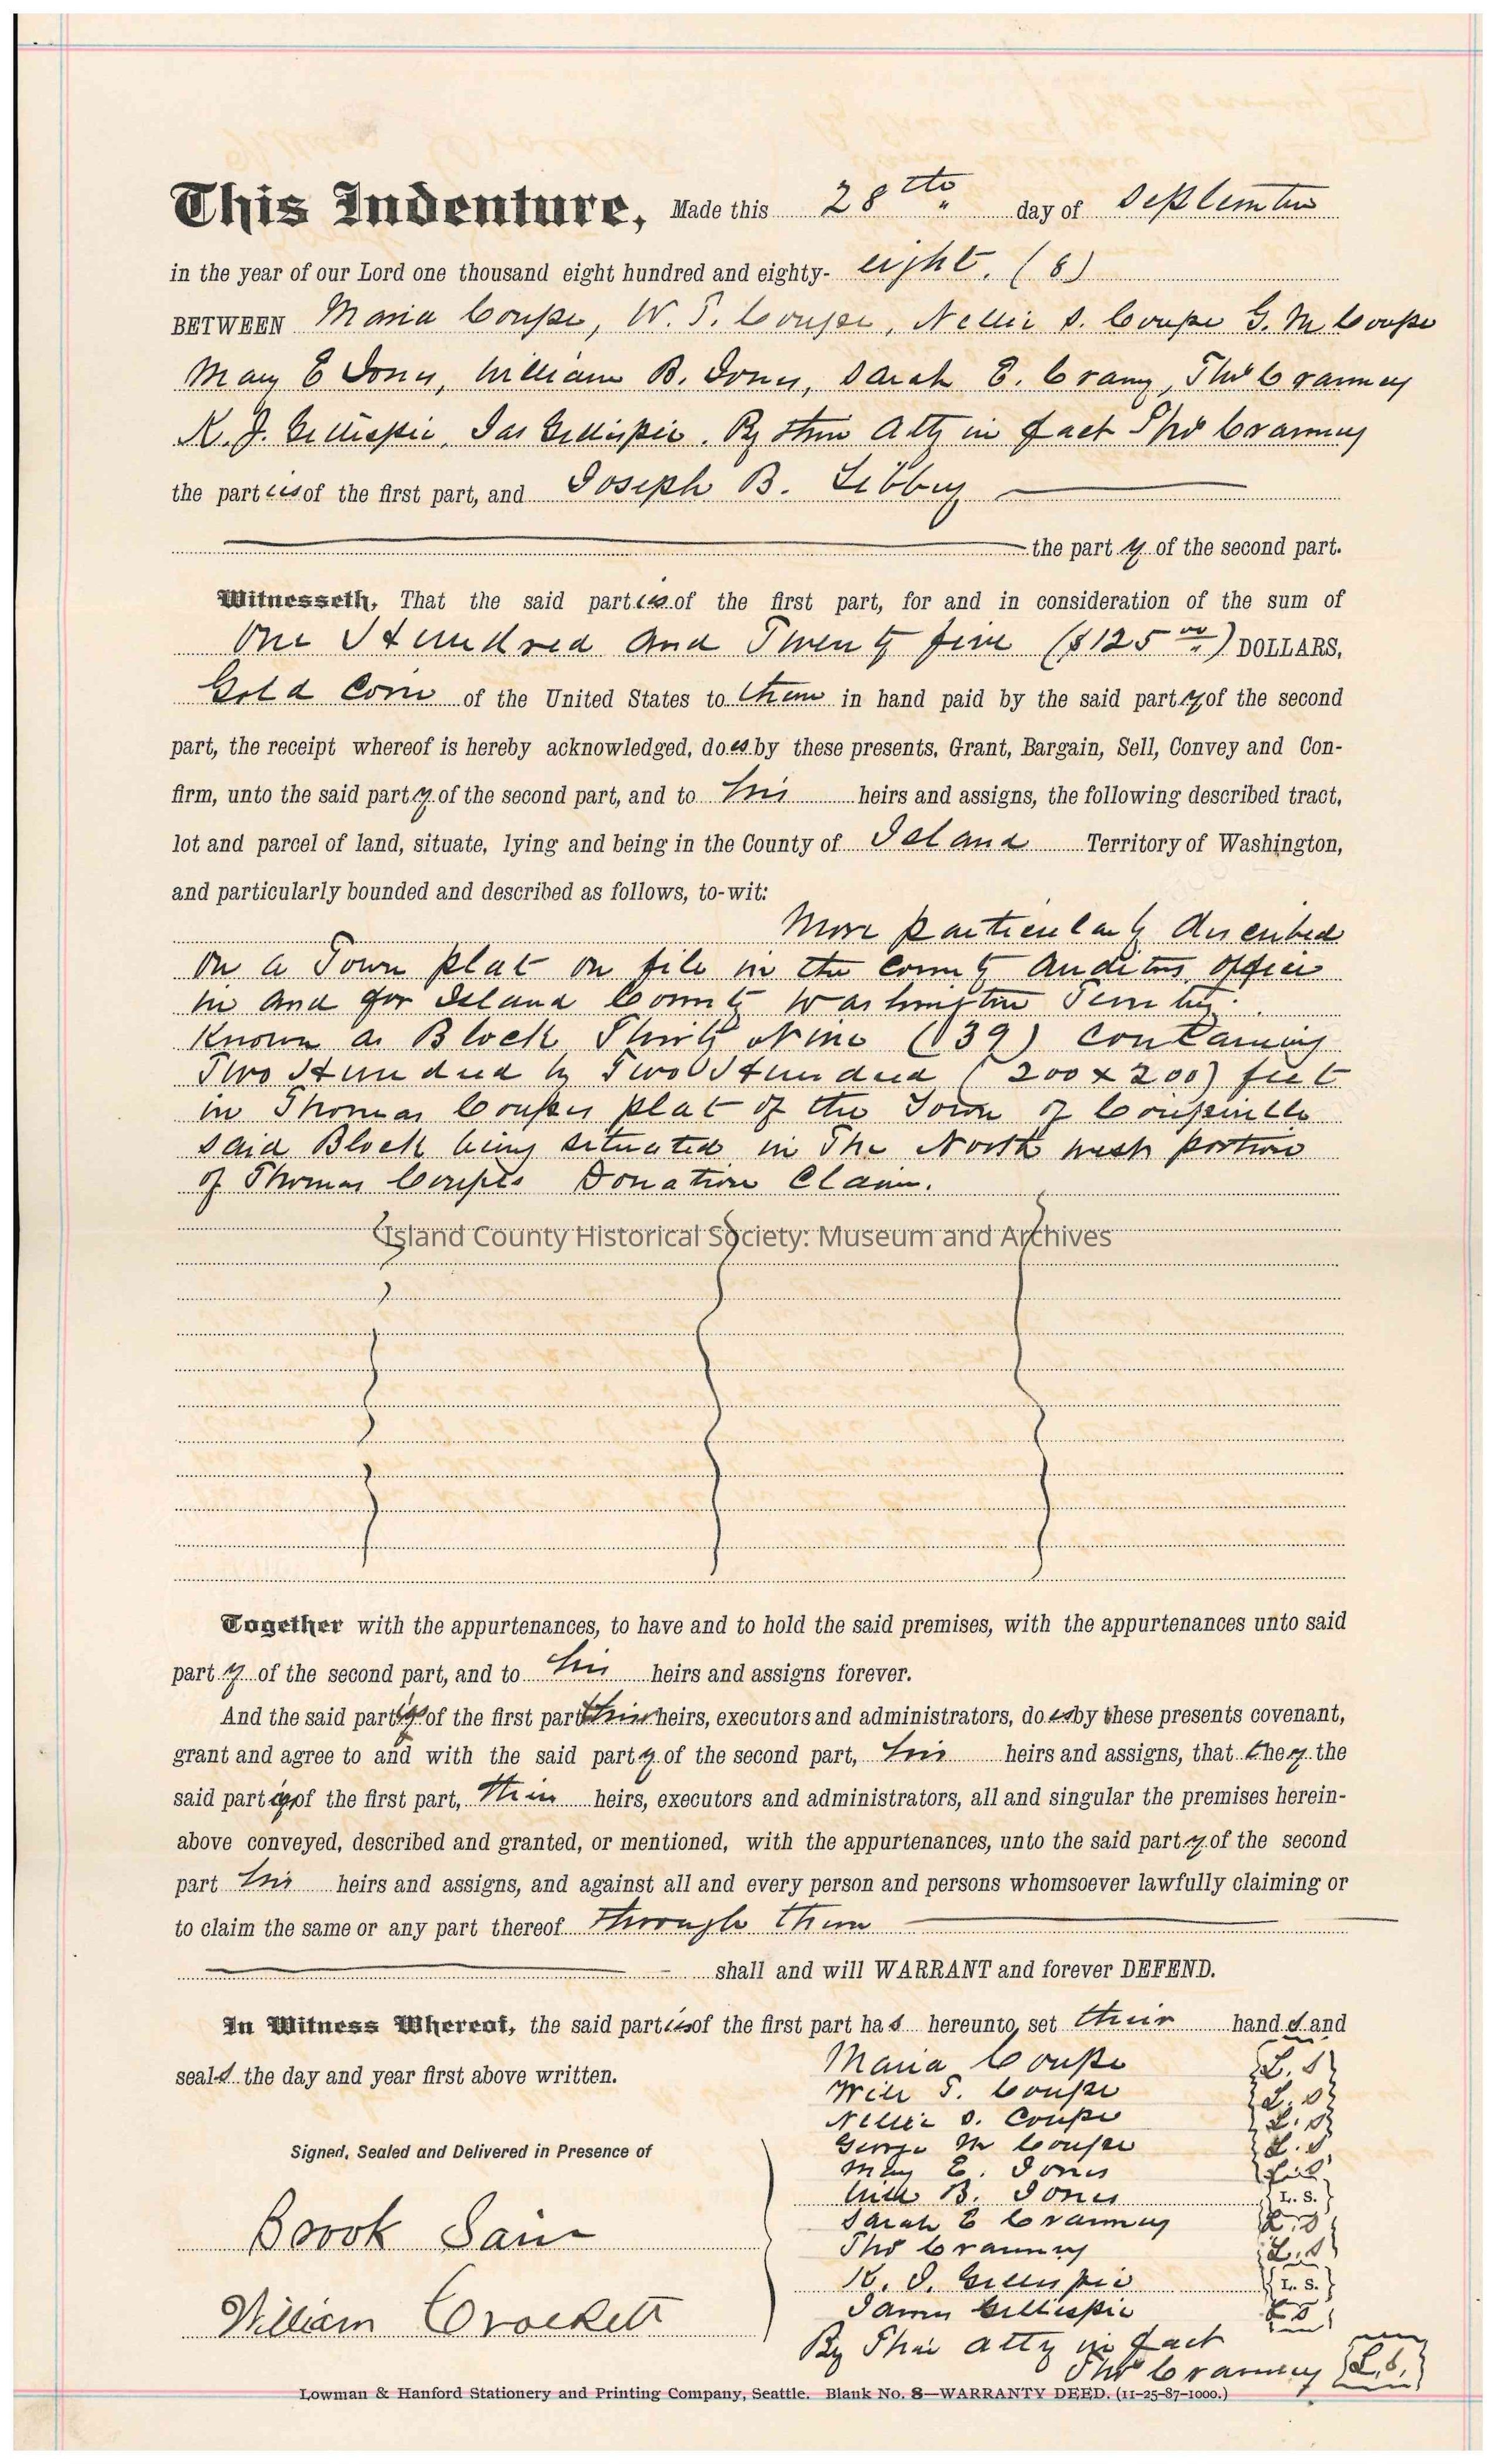 This Indenture, Made this 28th day of September
in the year of our Lord one thousand eight hundred and eighty- eight. (8)
BETWEEN Maria Coupe, W. T. Coupe, Nellie S. Coupe G. M. Coupe
Mary E Jones, William B. Jones, Sarah E. Crany, Thos Cranney
K. J. Gillispie, Jas Gillispie. By their Atty in fact Thos Cranney
the parties of the first part, and Joseph B. Libbey
the party of the second part.
Witnesseth, That the said parties of the first part, for and in consideration of the sum of
One Hundred and Twenty five ($125 00) DOLLARS,
Gold Coin of the United States to them in hand paid by the said party of the second
part, the receipt whereof is hereby acknowledged, does by these presents, Grant, Bargain, Sell, Convey and Con-
firm, unto the said party of the second part, and to his heirs and assigns, the following described tract,
lot and parcel of land, situate, lying and being in the County of Island Territory of Washington,
and particularly bounded and described as follows, to-wit:
More particularly described
on a Town plat on file in the County Auditors office
in and for Island County Washington Territory.
Known as Block Thirty Nine (39) Containing
Two Hundred by Two Hundred (200 x 200) feet
in Thomas Coupes plat of the Town of Coupeville
said Block being situated in the North west portion
of Thomas Coupes Donation Claim.
Island County Historical Society: Museum and Archives
Together with the appurtenances, to have and to hold the said premises, with the appurtenances unto said
party of the second part, and to his heirs and assigns forever.
And the said parties of the first part their heirs, executors and administrators, does by these presents covenant,
grant and agree to and with the said party of the second part, his heirs and assigns, that they the
said parties of the first part, their heirs, executors and administrators, all and singular the premises herein-
above conveyed, described and granted, or mentioned, with the appurtenances, unto the said party of the second
part his heirs and assigns, and against all and every person and persons whomsoever lawfully claiming or
to claim the same or any part thereof through them
shall and will WARRANT and forever DEFEND.
In Witness Whereof, the said parties of the first part has hereunto set their hands and
seals the day and year first above written.
Maria Coupe L. S.
Will T. Coupe L. S.
Nellie S. Coupe L. S.
George M Coupe L. S.
Signed, Sealed and Delivered in Presence of
Mary E. Jones L. S.
Will B. Jones L. S.
Sarah E Cranney L. S.
Thos Cranney L. S.
Brook Sain
K. J. Gillespie L. S.
James Gillispie L S
William Crockett
By Their atty in fact
Thos Cranney L. S.
Lowman & Hanford Stationery and Printing Company, Seattle. Blank No. 8—WARRANTY DEED. (11-25-87-1000.)